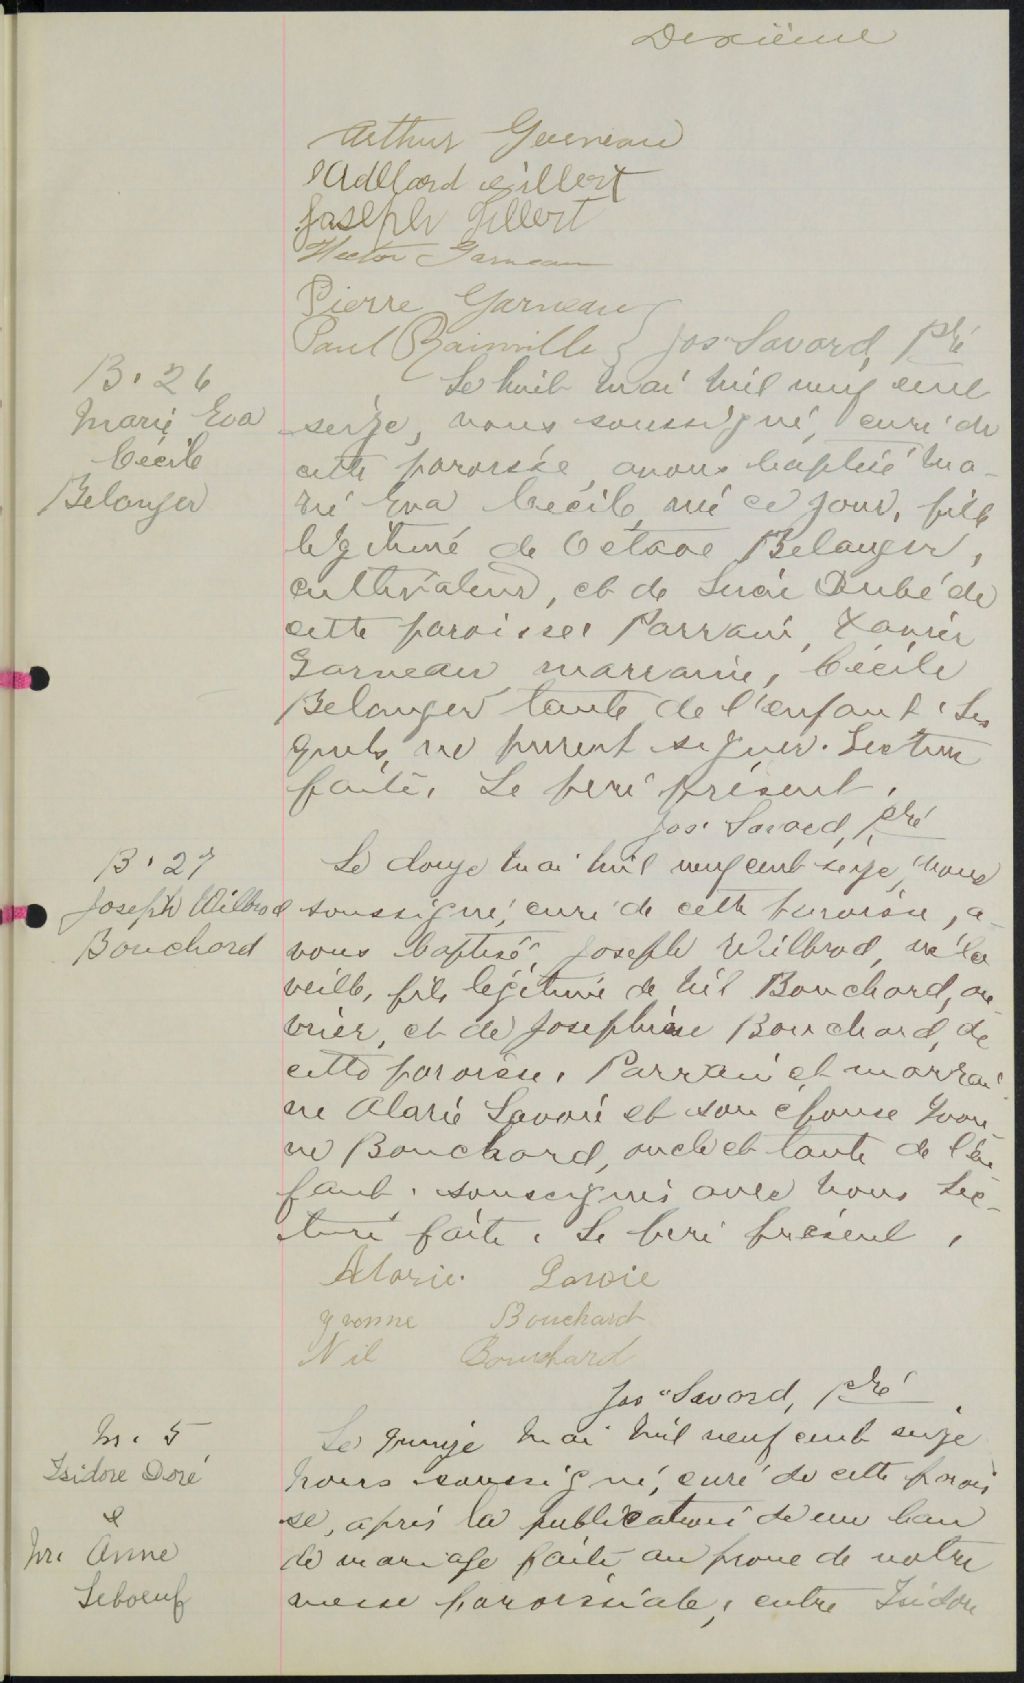 Dixième
Arthur Garneau
Adélard Gillert
Joseph Gillert
Hector Garneau
Pierre Garneau
Paul Rainville } Jos. Savard, ptre
B. 26
Marie Eva
Cécile
Belanger
Le huit mai mil neuf cent
seize, nous soussigné, curé de
cette paroisse, avons baptisé Ma-
rie Eva Cécile, née ce jour, fille
légitime de Octave Belanger,
cultivateur, et de Dubé de
cette paroisse. Parrain, Xavier
Garneau, marraine, Cécile
Belanger tante de l'enfant. Les
quels ne purent signer. Lecture
faite. Le père présent.
Jos. Savard, ptre
B. 27
Joseph Wilbrod
Bouchard
Le douze mai mil neuf cent seize, nous
soussigné, curé de cette paroisse, a-
vons baptisé, Joseph Wilbrod, né la
veille, fils légitime de Nil Bouchard, ou
vrier, et de Josephine Bouchard, de
cette paroisse. Parrain et marrai-
ne Alarie Lavoie et son épouse Yvon-
ne Bouchard, oncle et tante de l'en
fant. soussignés avec nous. Lec-
ture faite. Le père présent.
Alarie Lavoie
Yvonne Bouchard
Nil Bouchard
Jos. Savard, ptre
M. 5
Isidore Doré
&
M. Anne
Leboeuf
Le quinze mai mil neuf cent seize
nous soussigné, curé de cette parois
se, après la publication de un ban
de mariage faite au prône de notre
messe paroissiale, entre Isidore